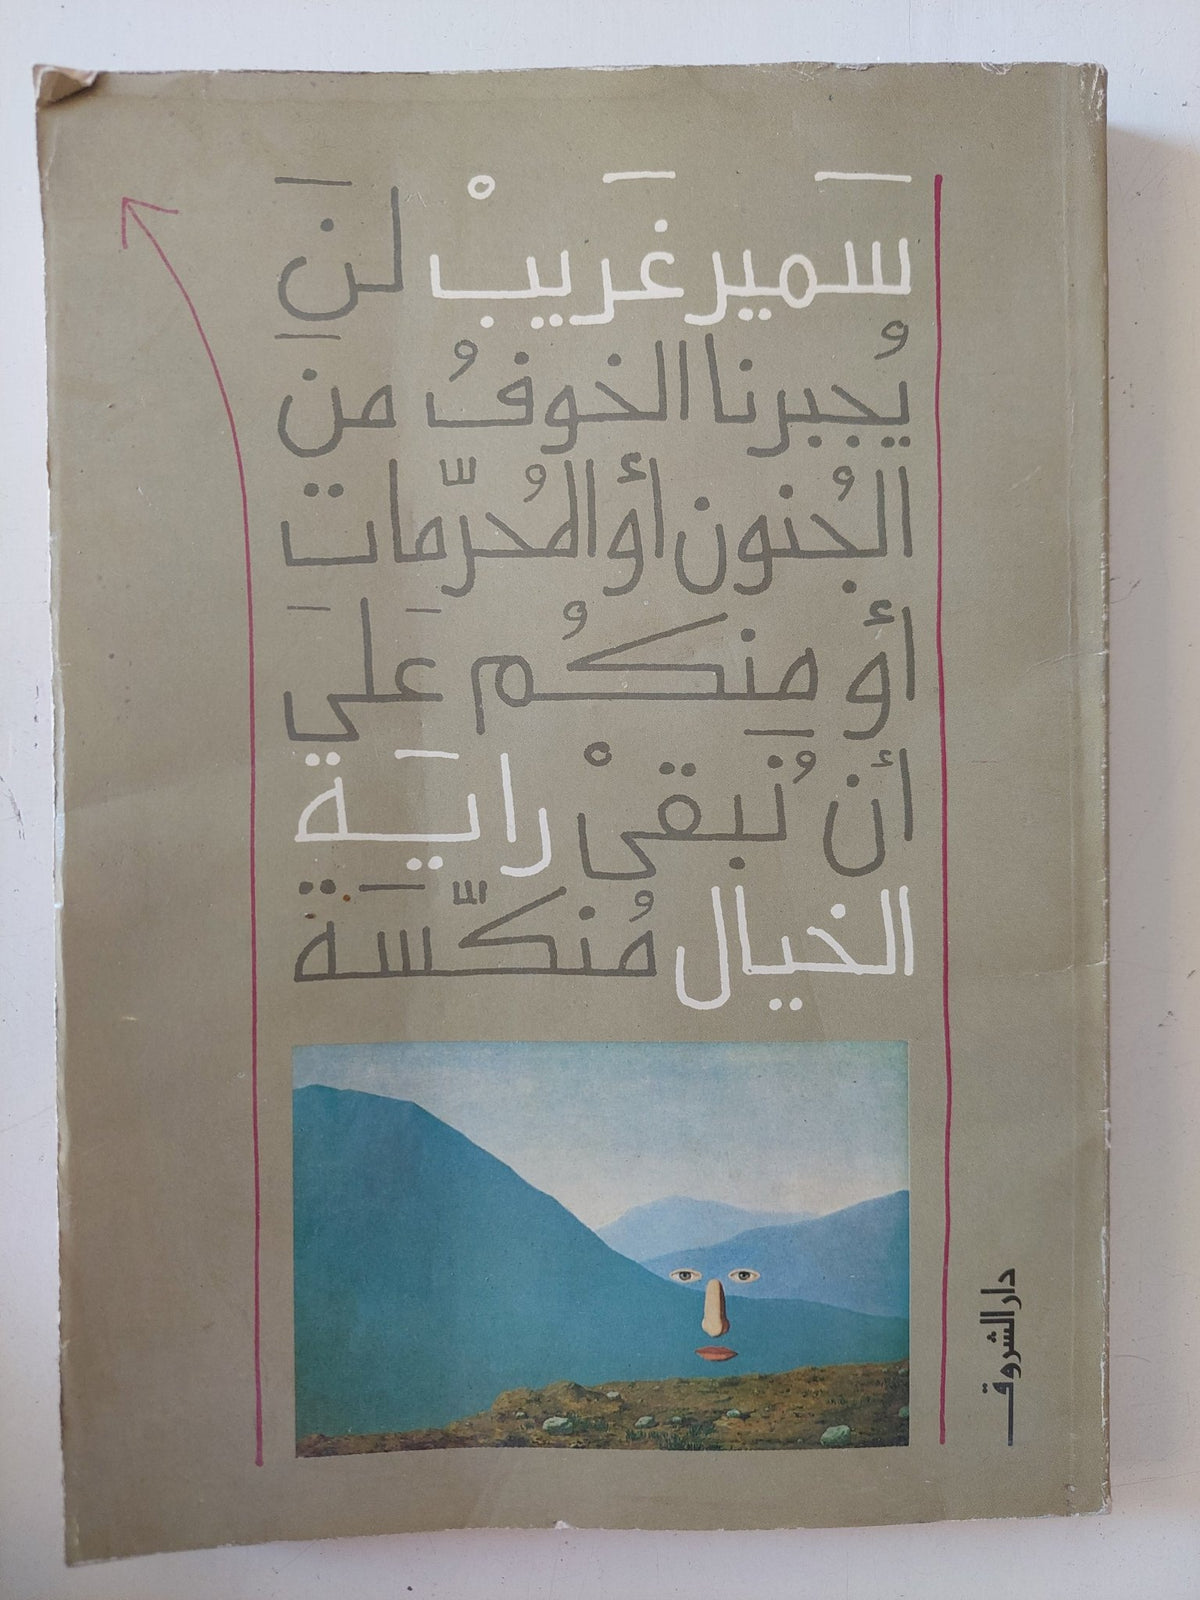 سَمير غَريبْ لَنِ
يُجبرنا الخوفُ من
الجُنون أو المُحرّمات
أو مِنكُم عَلي
أن نُبقىْ رايَة
الخيال مُنكّسَة
دار الشروق